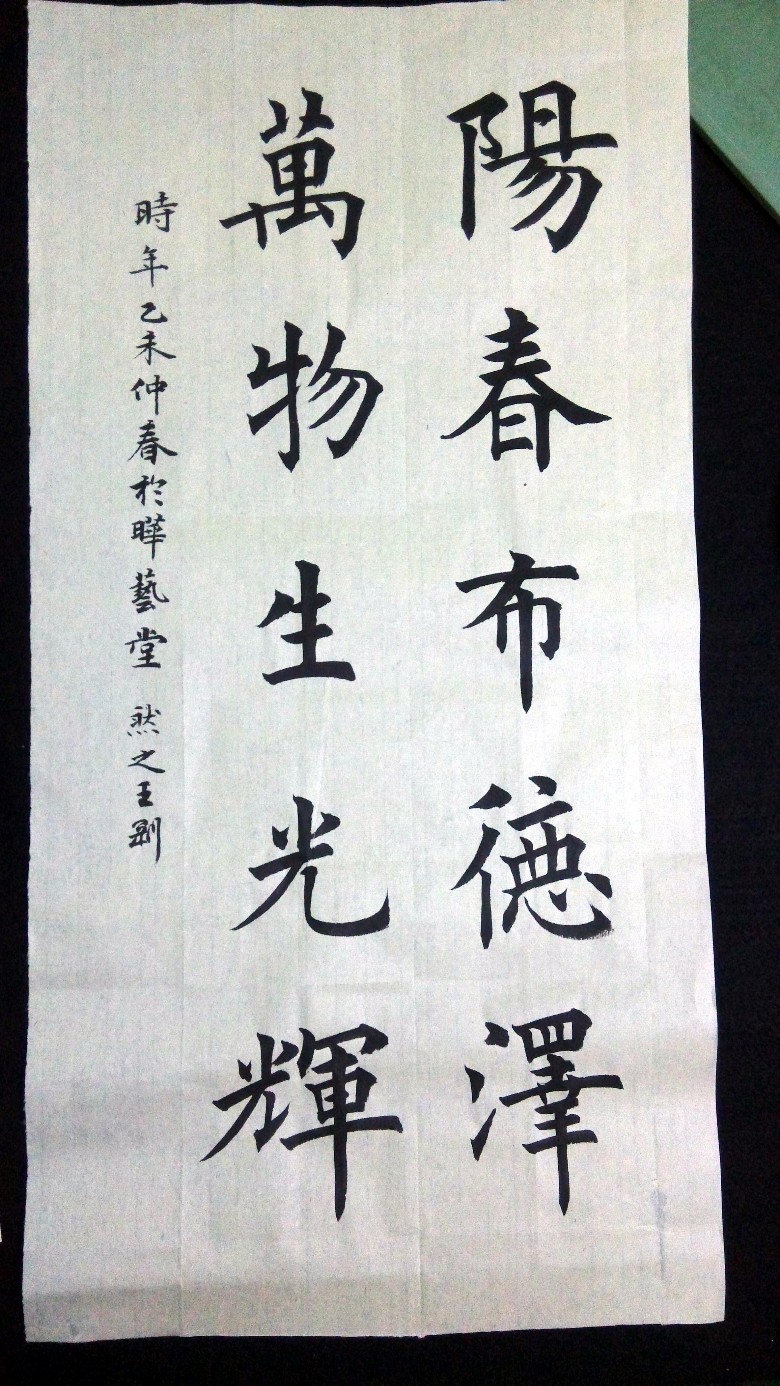 陽春布德澤
萬物生光輝
時年乙未仲春於曄藝堂 然之王剛